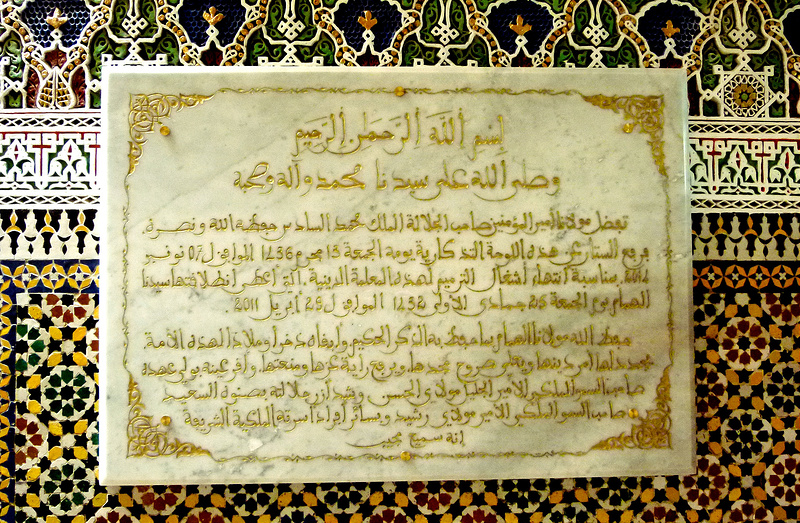 بسم الله الرحمن الرحيم
وصلى الله على سيدنا محمد وآله وصحبه
تفضل مولانا أمير المؤمنين صاحب الجلالة الملك محمد السادس حفظه الله ونصره
برفع الستار عن هذه اللوحة التذكارية يومه الجمعة 13 محرم 1436 الموافق ل 07 نونبر
2014. بمناسبة انتهاء أشغال الترميم لهذه المعلمة الدينية. التي أعطى انطلاقتها سيدنا
الهمام يوم الجمعة جمادى الأولى 1432 الموافق ل 29 أبريل 2011
حفظ الله مولانا الهمام بما حفظ به الذكر الحكيم وأبقاه ذخرا وملاذا لهذه الأمة.
مجددا لها أمر دينها ويعلي صروح مجدها، ويرفع راية عزها ومنعتها. وأقر عينه بولي عهده
صاحب السمو الملكي الأمير الجليل مولاي الحسن وشد أزر جلالته بصنوه السعيد
صاحب السمو الملكي الأمير مولاي رشيد وبسائر أفراد أسرته الملكية الشريفة
إنه سميع مجيب